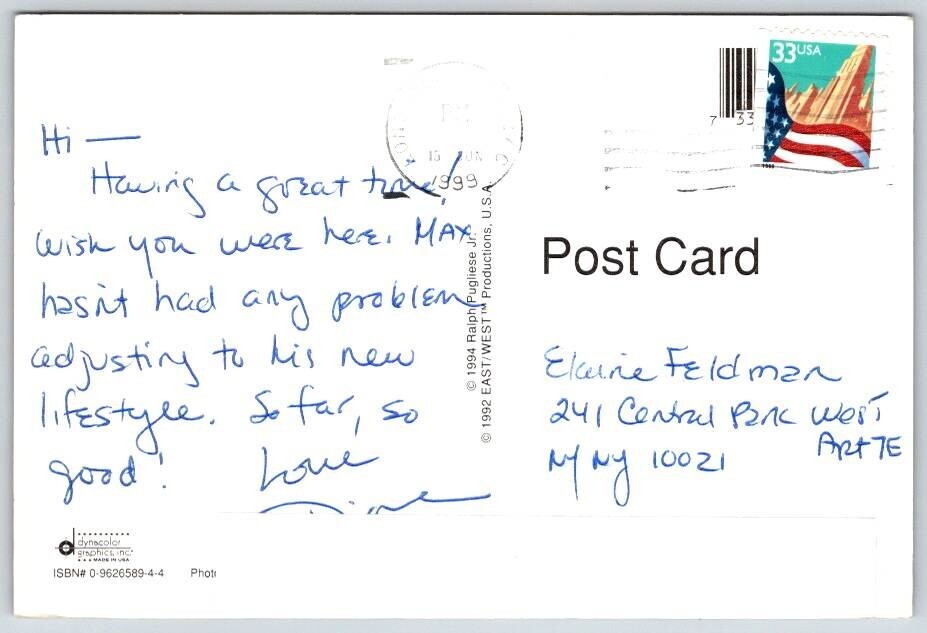 Hi —
Having a great time!
Wish you were here. MAX
hasn't had any problem
adjusting to his new
lifestyle. So far, so
good! Love
15 JUN
1999
33USA
7 33
© 1994 Ralph Pugliese Jr.
© 1992 EAST/WEST™ Productions, U.S.A.
Post Card
Elaine Feldman
241 Central Park West
Apt 7E
NY NY 10021
dynacolor
graphics, inc.
MADE IN USA
ISBN# 0-9626589-4-4 Phot